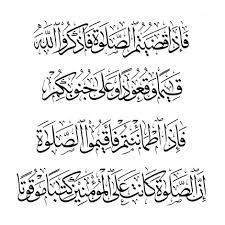 فَإِذَا قَضَيْتُمُ الصَّلَوٰةَ فَاذْكُرُوا اللَّهَ
قِيَٰمًا وَقُعُودًا وَعَلَىٰ جُنُوبِكُمْ
فَإِذَا اطْمَأْنَنتُمْ فَأَقِيمُوا الصَّلَوٰةَ
إِنَّ الصَّلَوٰةَ كَانَتْ عَلَى الْمُؤْمِنِينَ كِتَٰبًا مَّوْقُوتًا